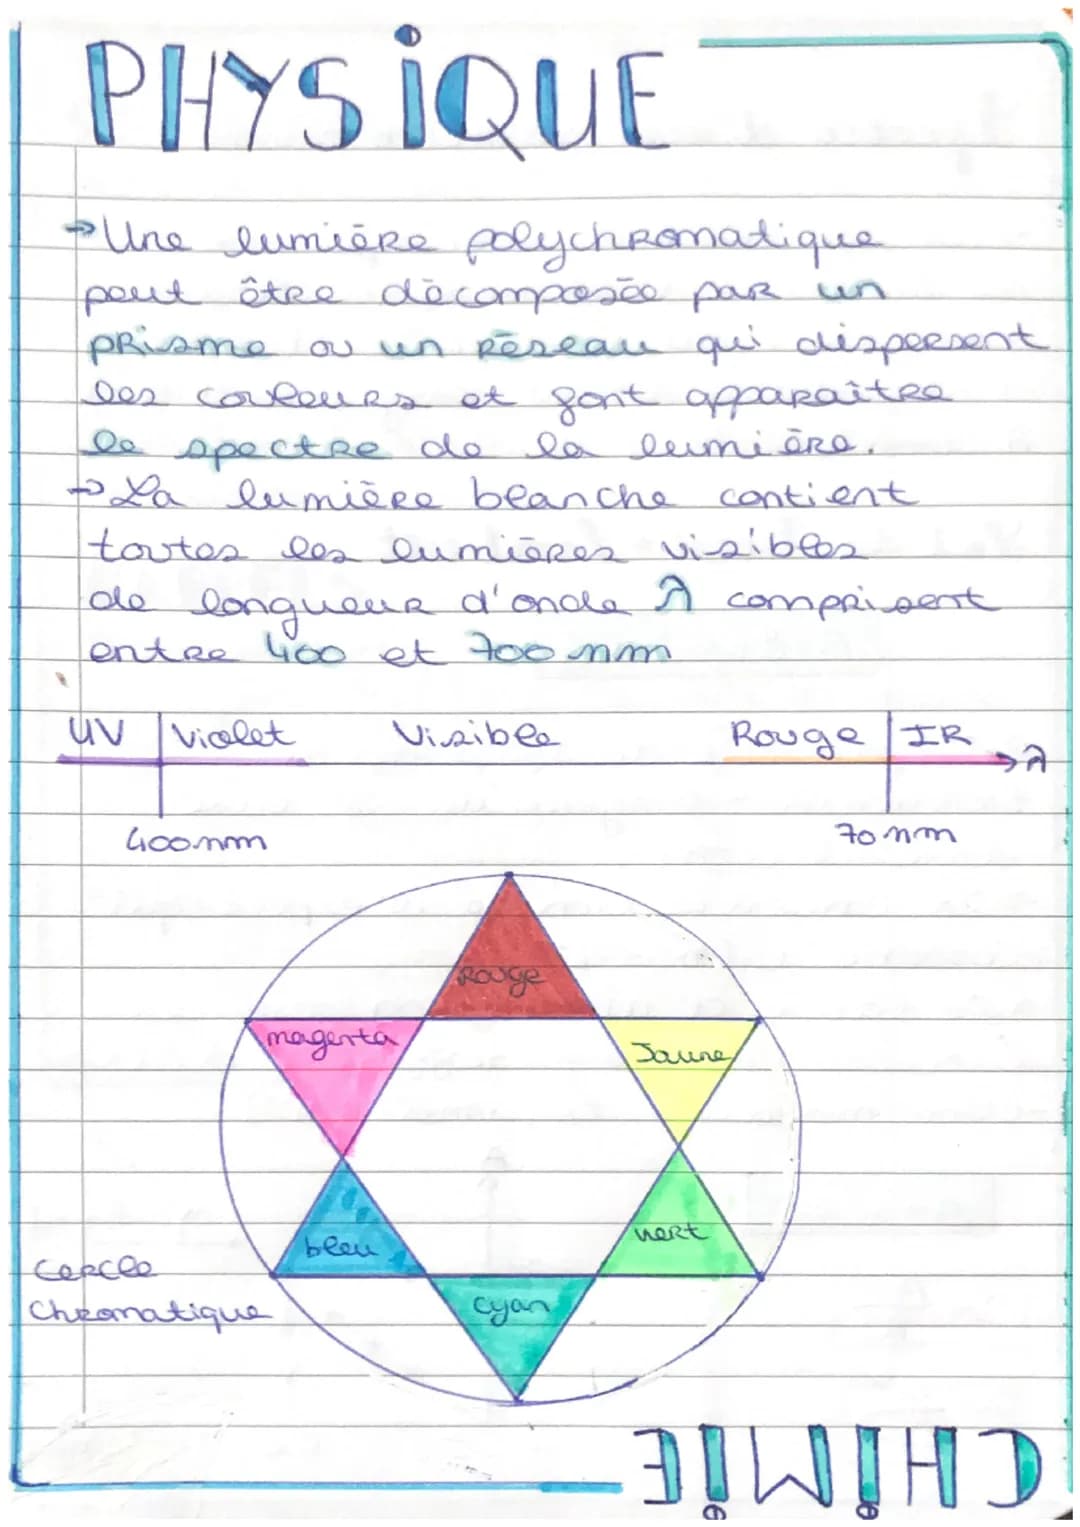 PHYSIQUE
→ Une lumière polychromatique
peut être décomposée par un
prisme ou un réseau qui dispersent
les couleurs et font apparaître
le spectre de la lumière.
→ La lumière blanche contient
toutes les lumières visibles
de longueur d'onde λ comprisent
entre 400 et 700 nm
UV Violet Visible Rouge IR λ
400nm 70 nm
Rouge
magenta Jaune
bleu vert
cyan
Cercle
Chromatique
CHIMIE